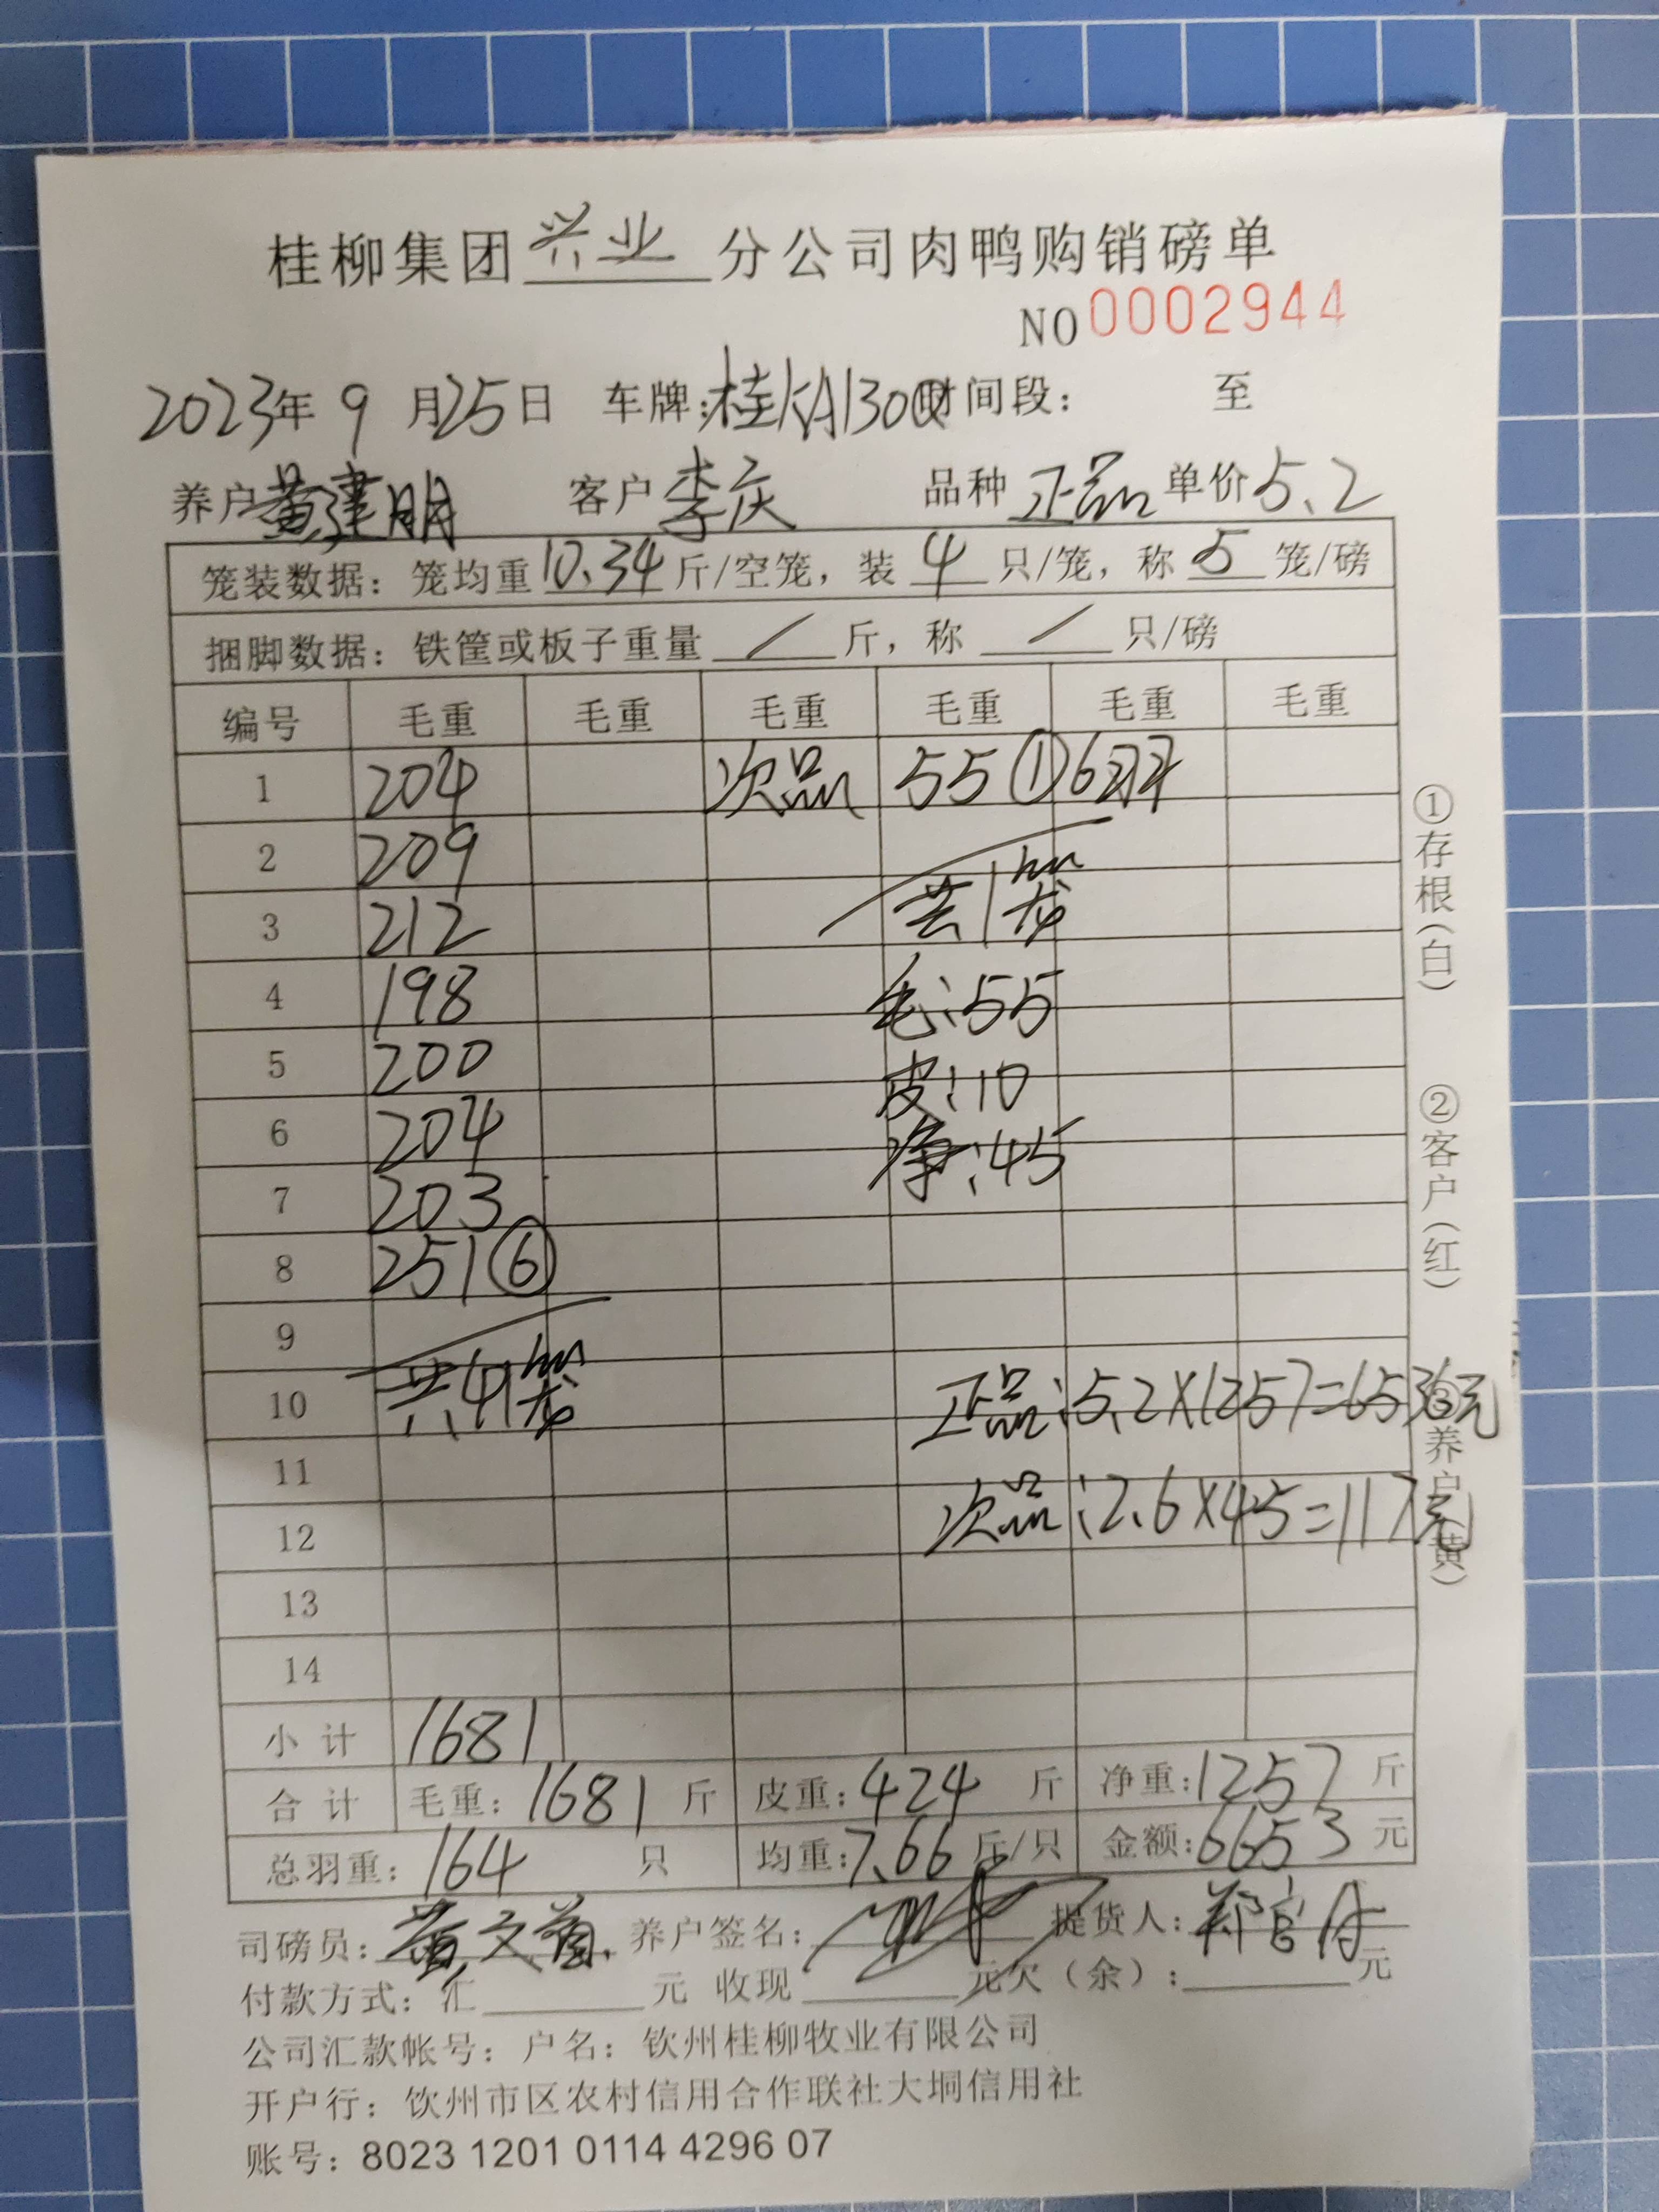 桂柳集团兴业分公司肉鸭购销磅单
NO 0002944
2023年 9 月25日 车牌:桂KA1300 时间段: 至
养户黄建明 客户李庆 品种正品 单价5.2
笼装数据: 笼均重10.34斤/空笼, 装4只/笼, 称5笼/磅
捆脚数据: 铁筐或板子重量 / 斤, 称 / 只/磅
编号 毛重 毛重 毛重 毛重 毛重 毛重
1 204 次品 55① 6只
2 209
3 212 共1笼
4 198 毛:55
5 200 皮:10
6 204 净:45
7 203
8 251⑥
9
10 共41笼 正品:5.2×1257=6536元
11
12 次品:2.6×45=117元
13
14
小计 1681
合计 毛重: 1681 斤 皮重: 424 斤 净重: 1257 斤
总羽重: 164 只 均重: 7.66 斤/只 金额: 6653 元
司磅员: 黄文 养户签名: 提货人: 郑
付款方式: 汇 元 收现 元欠(余): 元
公司汇款帐号: 户名: 钦州桂柳牧业有限公司
开户行: 钦州市区农村信用合作联社大垌信用社
账号: 8023 1201 0114 4296 07
①存根(白)
②客户(红)
③养户(黄)